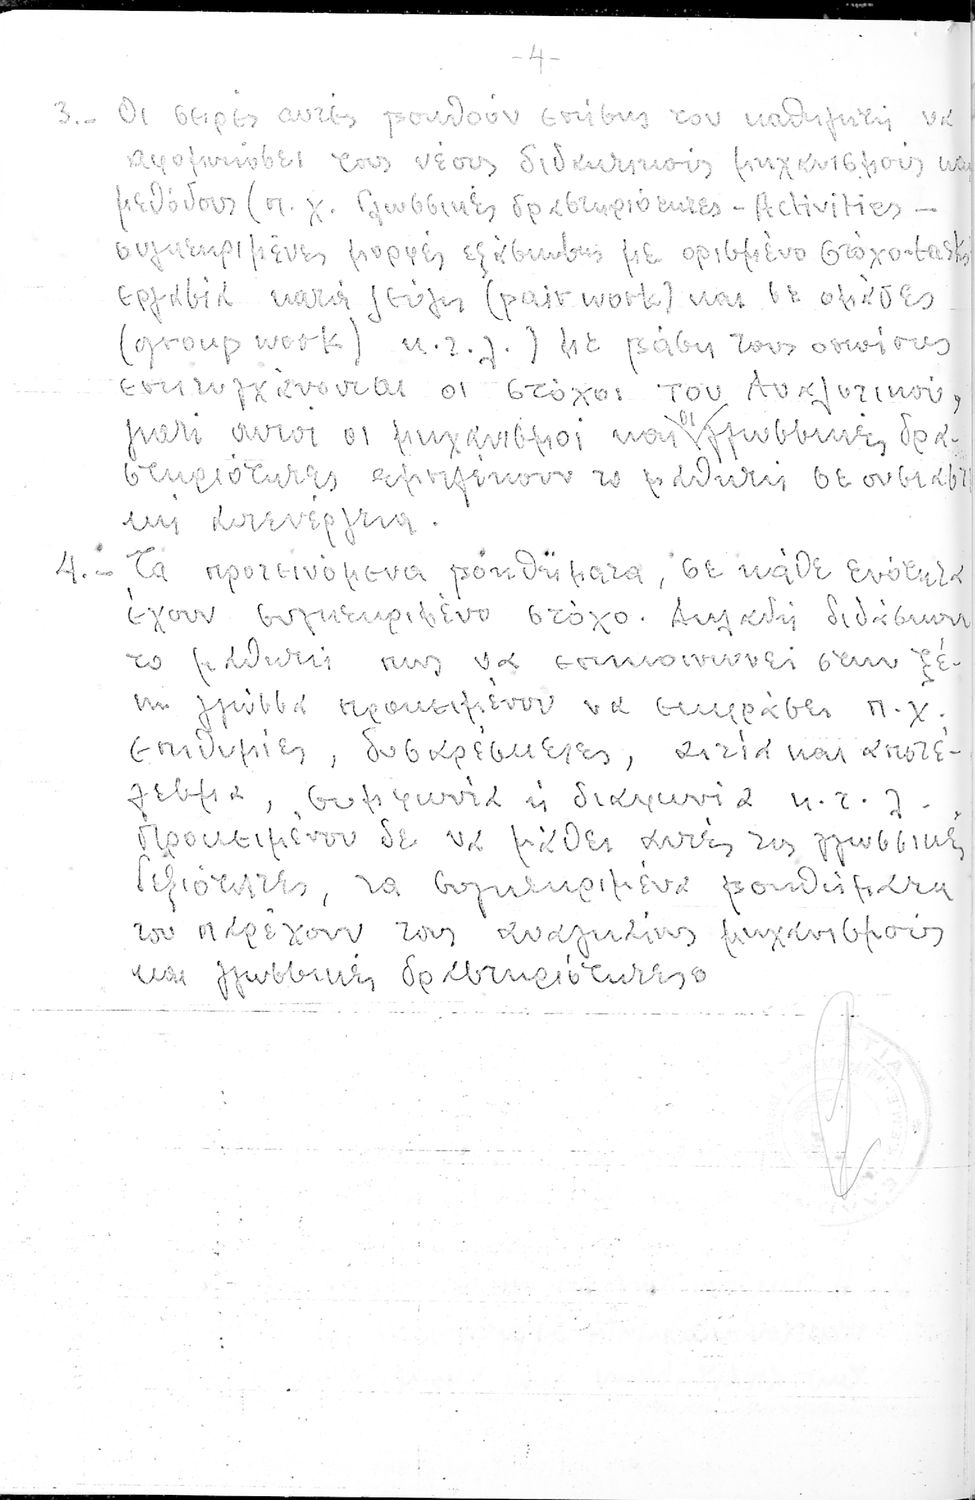 -4-
3.- Οι σειρές αυτές βοηθούν επίσης τον καθηγητή να
αφομοιώσει τους νέους διδακτικούς μηχανισμούς και
μεθόδους (π.χ. Γλωσσικές δραστηριότητες - Activities -
συγκεκριμένες μορφές εξάσκησης με ορισμένο στόχο-tasks
εργασία κατά ζεύγη (pair work) και σε ομάδες
(group work) κ.τ.λ.) με βάση τους οποίους
επιτυγχάνονται οι στόχοι του Αναλυτικού,
γιατί αυτοί οι μηχανισμοί και οι γλωσσικές δρα-
στηριότητες εμπλέκουν το μαθητή σε ουσιαστι
κή
4.- Τα προτεινόμενα βοηθήματα, σε κάθε ενότητα
έχουν συγκεκριμένο στόχο. Δηλαδή διδάσκουν
το μαθητή πως να επικοινωνεί στην ξέ-
νη γλώσσα προκειμένου να εκφράσει π.χ.
επιθυμίες, δυσαρέσκειες, αιτία και αποτέ-
λεσμα, συμφωνία ή διαφωνία κ.τ.λ.
Προκειμένου δε να μάθει αυτές τις γλωσσικές
δεξιότητες, τα συγκεκριμένα βοηθήματα
του παρέχουν τους αναγκαίους μηχανισμούς
και γλωσσικές δραστηριότητες.